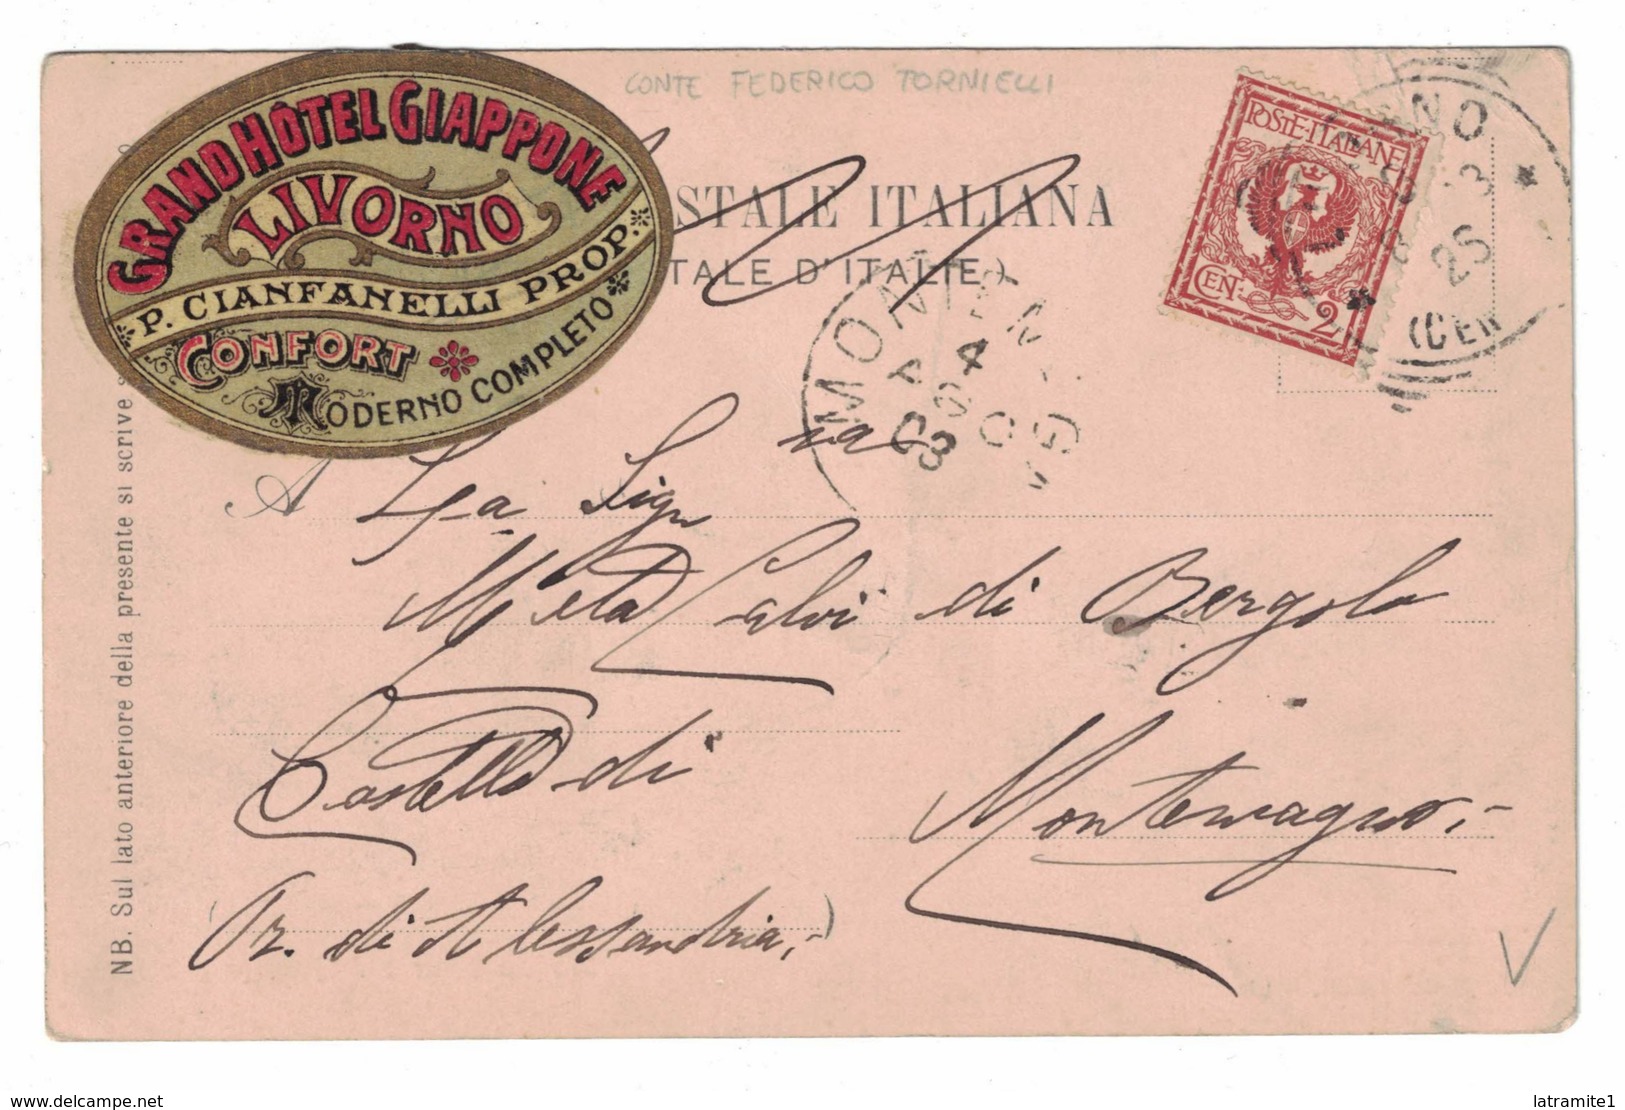 CONTE FEDERICO TORNIELLI
GRAND HÔTEL GIAPPONE
LIVORNO
P. CIANFANELLI PROP.
CONFORT
MODERNO COMPLETO
STALE ITALIANA
TALE D'ITALIE)
POSTE·ITALIANE
CEN. 2
NO
25
(CEN
MON
4
03
A La Sigra
Meta Calvi di Bergolo
Castello di
Montemagno
(Pr. di Alessandria)
NB. Sul lato anteriore della presente si scrive
www.delcampe.net
latramite1